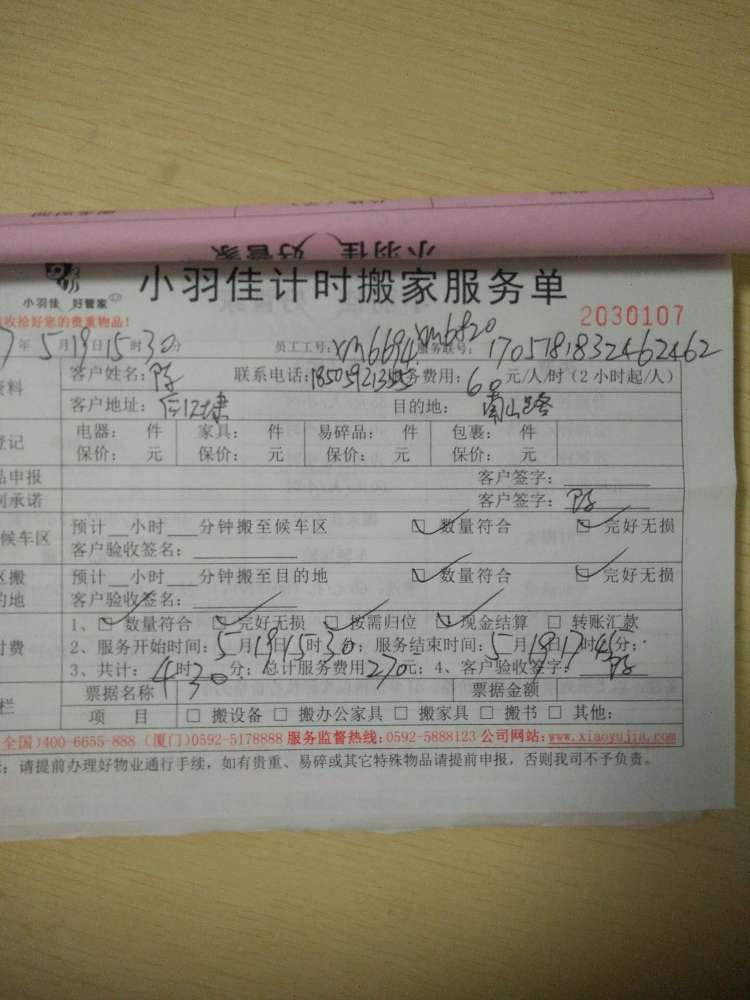 小羽佳 好管家
小羽佳 好管家
小羽佳计时搬家服务单
收拾好您的贵重物品!
2030107
7年5月19日15时30分 员工工号:xm6694 xm6820 服务联号:1705181832462462
资料 客户姓名:陈 联系电话: 服务费用:60元/人/时(2小时起/人)
客户地址:后江埭 目的地:嵩山路
登记 电器: 件 家具: 件 易碎品: 件 包裹: 件
保价: 元 保价: 元 保价: 元 保价: 元
品申报 客户签字:
承诺 客户签字:陈
候车区 预计__小时___分钟搬至候车区 ☑数量符合 ☑完好无损
客户验收签名:
区搬 预计__小时___分钟搬至目的地 ☑数量符合 ☑完好无损
的地 客户验收签名:
1、☑数量符合 ☑完好无损 ☑按需归位 ☑现金结算 □转账汇款
付费 2、服务开始时间:5月19日15时30分;服务结束时间:5月19日17时45分;
3、共计:4时30分;总计服务费用270元;4、客户验收签字:陈
栏 票据名称 票据金额
项 目 □搬设备 □搬办公家具 □搬家具 □搬书 □其他:
全国)400-6655-888 (厦门)0592-5178888 服务监督热线:0592-5888123 公司网站:www.xiaoyujia.com
:请提前办理好物业通行手续,如有贵重、易碎或其它特殊物品请提前申报,否则我司不予负责。